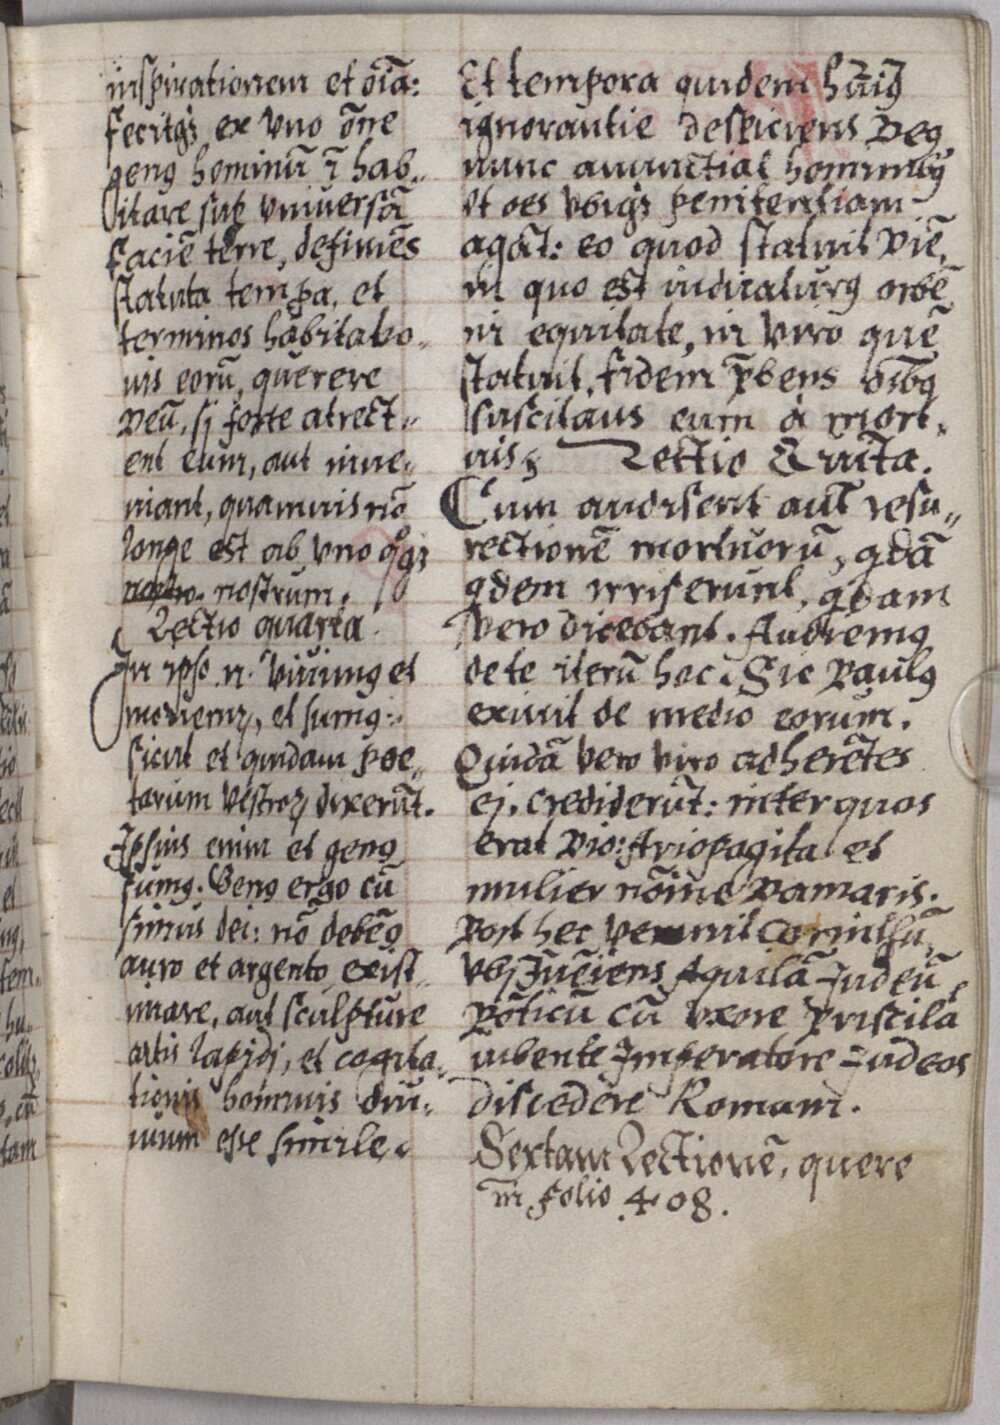 inspirationem et oīa:
fecitqȝ ex vno ōne
genꝯ hominū ī hab..
itare sup vniversā
faciē terre, definiēs
statuta tempa, et
terminos habitatio..
nis eorū, querere
Deū, si forte atrect..
ent eum, aut inve..
niant, quamvis nō
longe est ab vno qoqȝ
nostrum.
Lectio quarta.
In ipso .n. vivimꝯ et
movemꝛ, et sumꝯ:.
sicut et quidam poe..
tarum vestroꝝ dixerūt.
Ipsius enim et genꝯ
sumꝯ. Genꝯ ergo cū
simus dei: nō debēꝯ
auro et argento exist..
imare, aut sculpture
artis lapidi, et cogita..
tionis hominis divi..
num esse simile.
Et tempora quidem hūiꝯ
ignorantie despiciens Deꝯ,
nunc annunctiat hominibꝯ
vt oēs vbiqȝ penitentiam
agāt: eo quod statuit diē,
in quo est iudicaturꝯ orbē
in equitate, in viro quē
statuit, fidem p̄bens oībꝯ
suscitans eum à mort..
uis; Lectio Quīta.
Cum audisent aūt resu..
rectionē mortuorū, qdā
qdem irriserunt, qdam
vero dicebant. Audiemꝯ
de te iterū hoc. Sic Paulꝯ
exivit de medio eorum.
Quidā vero viro adherētes
ej, crediderūt: inter quos
erat Dio: Ariopagita et
mulier nōine Damaris.
Post hec venit Corinthū,
vbj Īvēiens Aquilā Judeū
Pōticū cū vxore Priscila,
iubente Imperatore Judeos
discedere Romam.
Sextam Lectionē, quere
in folio 408.